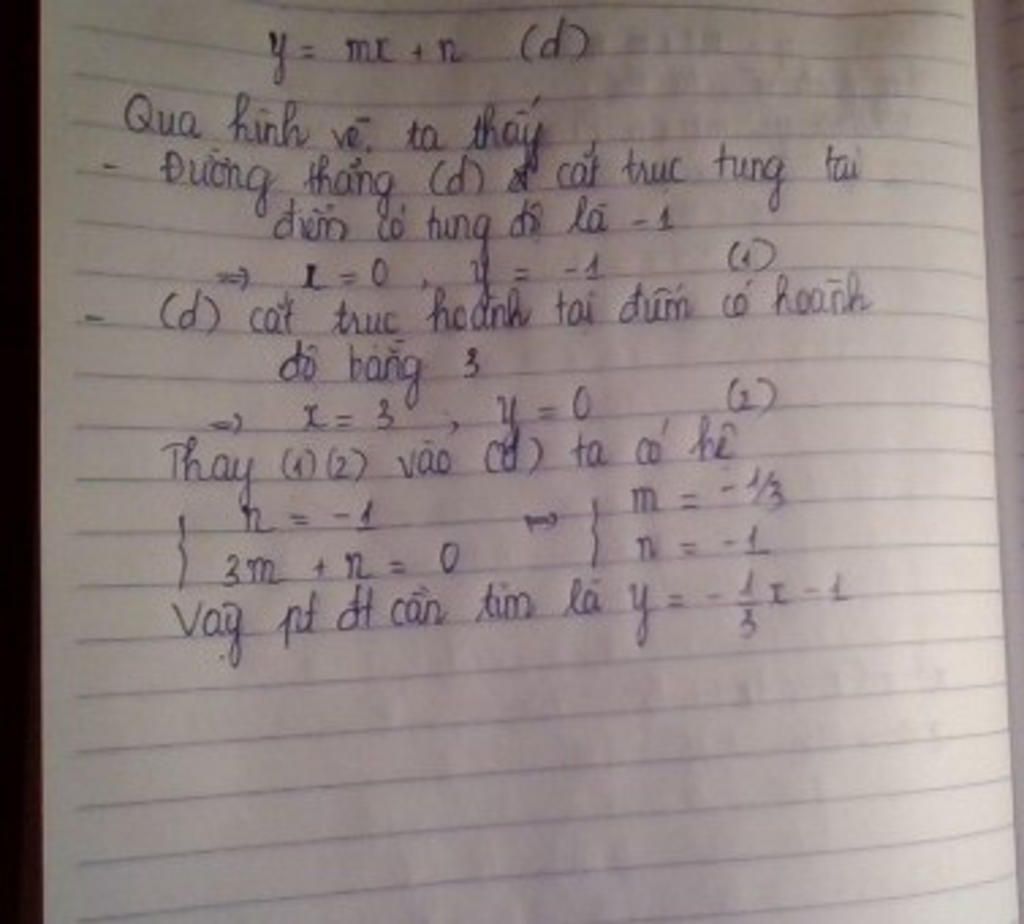 y = mx + n (d)
Qua hình vẽ ta thấy
- Đường thẳng (d) cắt trục tung tại
điểm có tung độ là -1
=> x = 0 , y = -1 (1)
- (d) cắt trục hoành tại điểm có hoành
độ bằng 3
=> x = 3 , y = 0 (2)
Thay (1) (2) vào (d) ta có hệ
{ n = -1 => { m = -1/3
{ 3m + n = 0 { n = -1
Vậy pt đt cần tìm là y = -1/3 x - 1